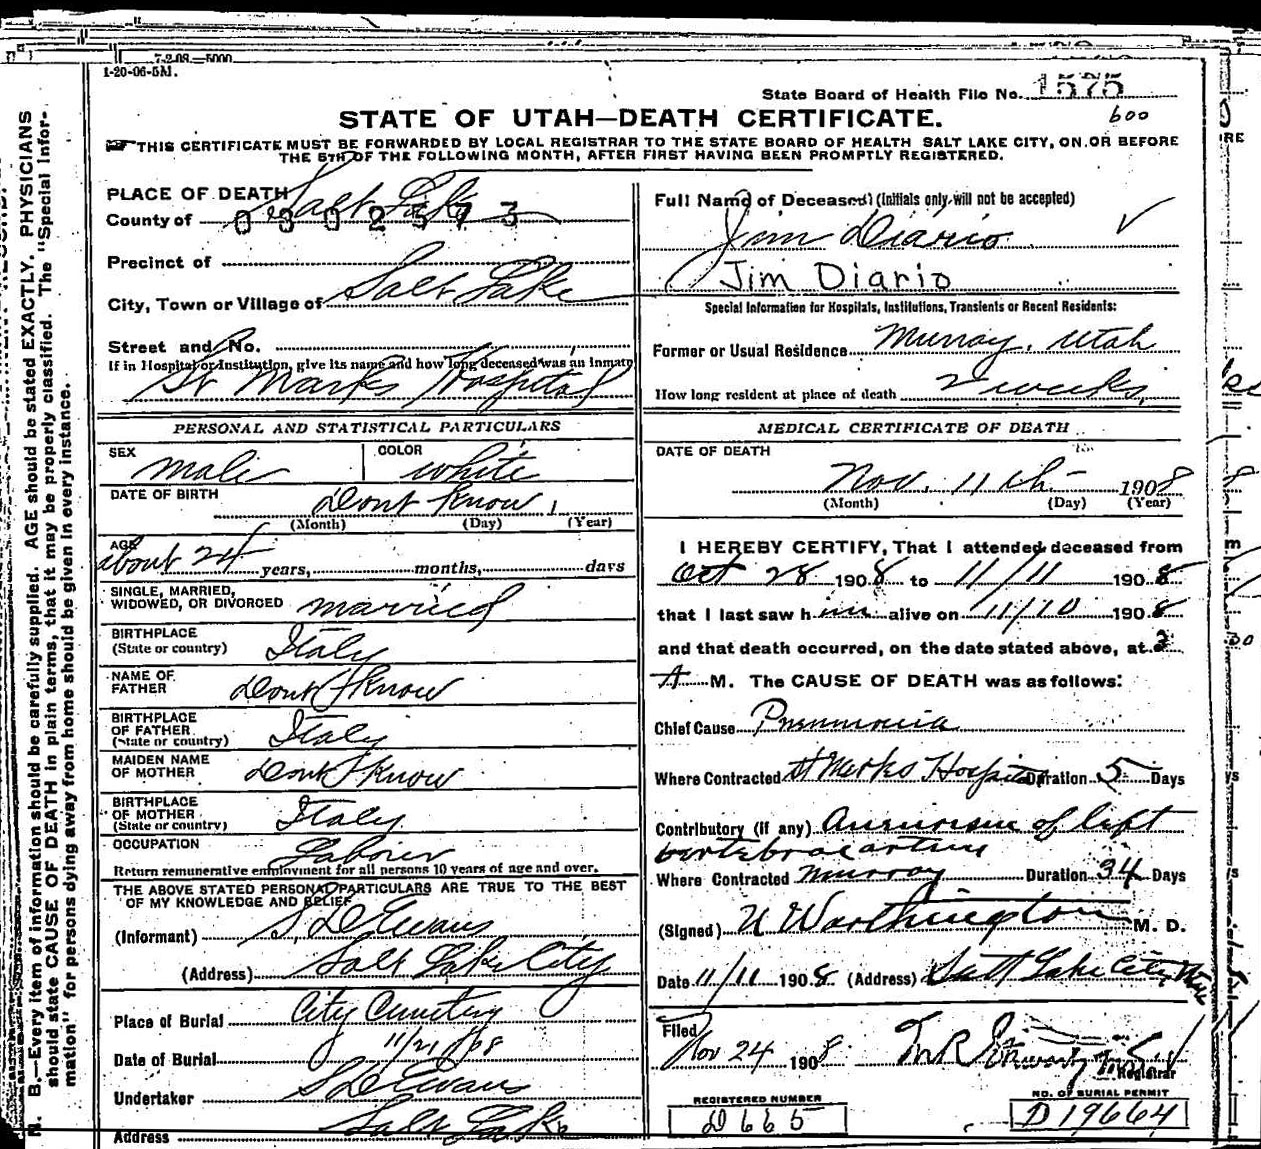 7-2-08—5000
1-20-06-5M.
State Board of Health File No. 1575
STATE OF UTAH—DEATH CERTIFICATE.
600
THIS CERTIFICATE MUST BE FORWARDED BY LOCAL REGISTRAR TO THE STATE BOARD OF HEALTH SALT LAKE CITY, ON OR BEFORE
THE 5TH OF THE FOLLOWING MONTH, AFTER FIRST HAVING BEEN PROMPTLY REGISTERED.
N. B.—Every item of information should be carefully supplied. AGE should be stated EXACTLY. PHYSICIANS
should state CAUSE OF DEATH in plain terms, that it may be properly classified. The "Special Infor-
mation" for persons dying away from home should be given in every instance.
PLACE OF DEATH
County of Salt Lake
0802573
Precinct of
City, Town or Village of Salt Lake
Street and No.
If in Hospital or Institution, give its name and how long deceased was an inmate
St Marks Hospital
PERSONAL AND STATISTICAL PARTICULARS
SEX male COLOR white
DATE OF BIRTH Dont Know
(Month) (Day) (Year)
AGE about 24 years, months, days
SINGLE, MARRIED,
WIDOWED, OR DIVORCED married
BIRTHPLACE
(State or country) Italy
NAME OF
FATHER Dont Know
BIRTHPLACE
OF FATHER
(State or country) Italy
MAIDEN NAME
OF MOTHER Dont Know
BIRTHPLACE
OF MOTHER
(State or country) Italy
OCCUPATION Laborer
Return remunerative employment for all persons 10 years of age and over.
THE ABOVE STATED PERSONAL PARTICULARS ARE TRUE TO THE BEST
OF MY KNOWLEDGE AND BELIEF
(Informant) S. D. Evans
(Address) Salt Lake City
Place of Burial City Cemetery
Date of Burial 11/21/08
Undertaker S D Evans
Address Salt Lake
Full Name of Deceased (Initials only will not be accepted)
Jim Diario
Jim Diario
Special Information for Hospitals, Institutions, Transients or Recent Residents:
Former or Usual Residence Murray, Utah
How long resident at place of death 2 weeks.
MEDICAL CERTIFICATE OF DEATH
DATE OF DEATH
Nov. 11th 1908
(Month) (Day) (Year)
I HEREBY CERTIFY, That I attended deceased from
Oct 28 1908 to 11/11 1908
that I last saw him alive on 11/10 1908
and that death occurred, on the date stated above, at 2
A M. The CAUSE OF DEATH was as follows:
Chief Cause Pneumonia
Where Contracted St Marks Hospital Duration 5 Days
Contributory (if any) Aneurism of left
vertebral artery
Where Contracted Murray Duration 34 Days
(Signed) Worthington M. D.
Date 11/11 1908 (Address) Salt Lake City
Filed
Nov 24 1908
Registrar
REGISTERED NUMBER
D665
NO. OF BURIAL PERMIT
D19664